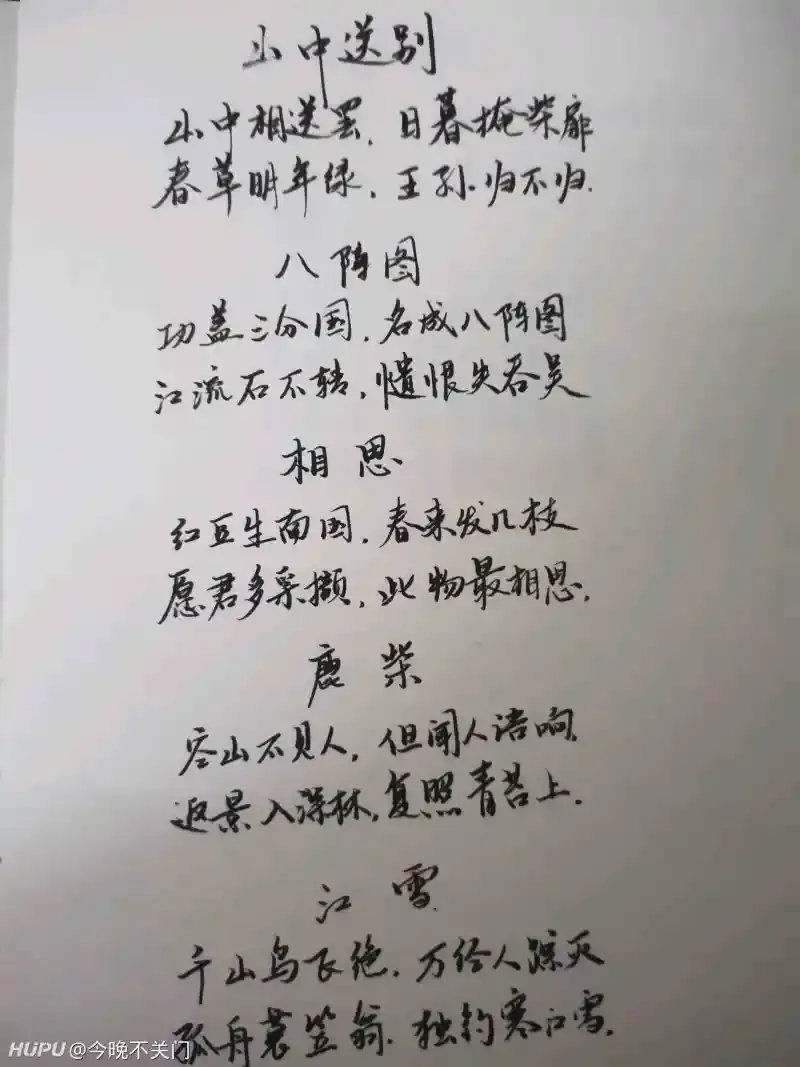 山中送别
山中相送罢，日暮掩柴扉
春草明年绿，王孙归不归.
八阵图
功盖三分国，名成八阵图
江流石不转，遗恨失吞吴
相思
红豆生南国，春来发几枝
愿君多采撷，此物最相思.
鹿柴
空山不见人，但闻人语响.
返景入深林，复照青苔上.
江雪.
千山鸟飞绝，万径人踪灭
孤舟蓑笠翁.独钓寒江雪.
HUPU @今晚不关门